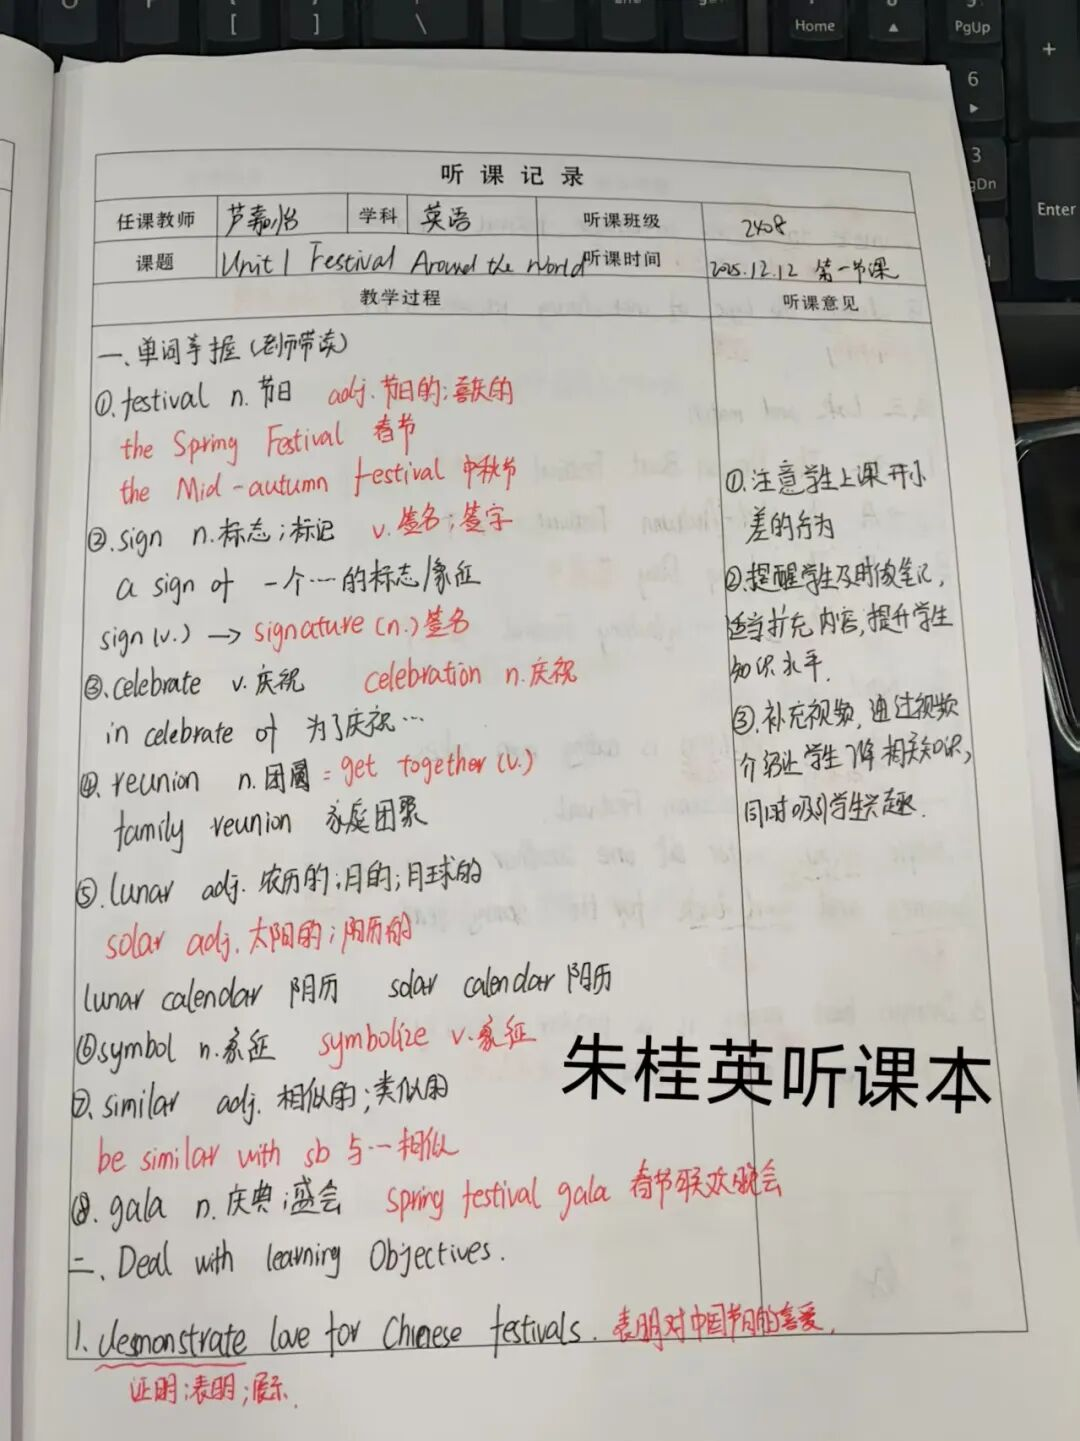 Home
PgUp
Enter
听课记录
任课教师 芦嘉怡 学科 英语 听课班级 2408
课题 Unit 1 Festival Around the World 听课时间 2025.12.12 第一节课
教学过程 听课意见
一、单词掌握(老师带读)
①.festival n.节日 adj.节日的;喜庆的
the Spring Festival 春节
the Mid-autumn festival 中秋节
②.sign n.标志;标记 v.签名;签字
a sign of 一个…的标志/象征
sign(v.) → signature(n.)签名
③.celebrate v.庆祝 celebration n.庆祝
in celebrate of 为了庆祝…
④.reunion n.团圆=get together(v.)
family reunion 家庭团聚
⑤.lunar adj.农历的;月的;月球的
solar adj.太阳的;阳历的
lunar calendar 阴历 solar calendar 阳历
⑥symbol n.象征 symbolize v.象征
⑦.similar adj.相似的;类似的
be similar with sb 与…相似
⑧.gala n.庆典;盛会 spring festival gala 春节联欢晚会
二、Deal with learning Objectives.
1.demonstrate love for Chinese festivals. 表明对中国节日的喜爱.
证明;表明;展示.
①.注意学生上课开小
差的行为
②.提醒学生及时做笔记,
适当扩充内容,提升学生
知识水平.
③.补充视频,通过视频
介绍让学生了解相关知识,
同时吸引学生兴趣.
朱桂英听课本